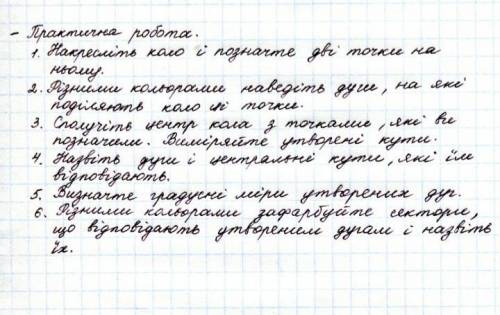 - Практична робота.
1. Накресліть коло і позначте дві точки на
ньому.
2. Різними кольорами наведіть дуги, на які
поділяють коло ці точки.
3. Сполучіть центр кола з точками, які ви
позначили. Виміряйте утворені кути.
4. Назвіть дуги і центральні кути, які їм
відповідають.
5. Визначте градусні міри утворених дуг.
6. Різними кольорами зафарбуйте сектори,
що відповідають утвореним дугам і назвіть
їх.